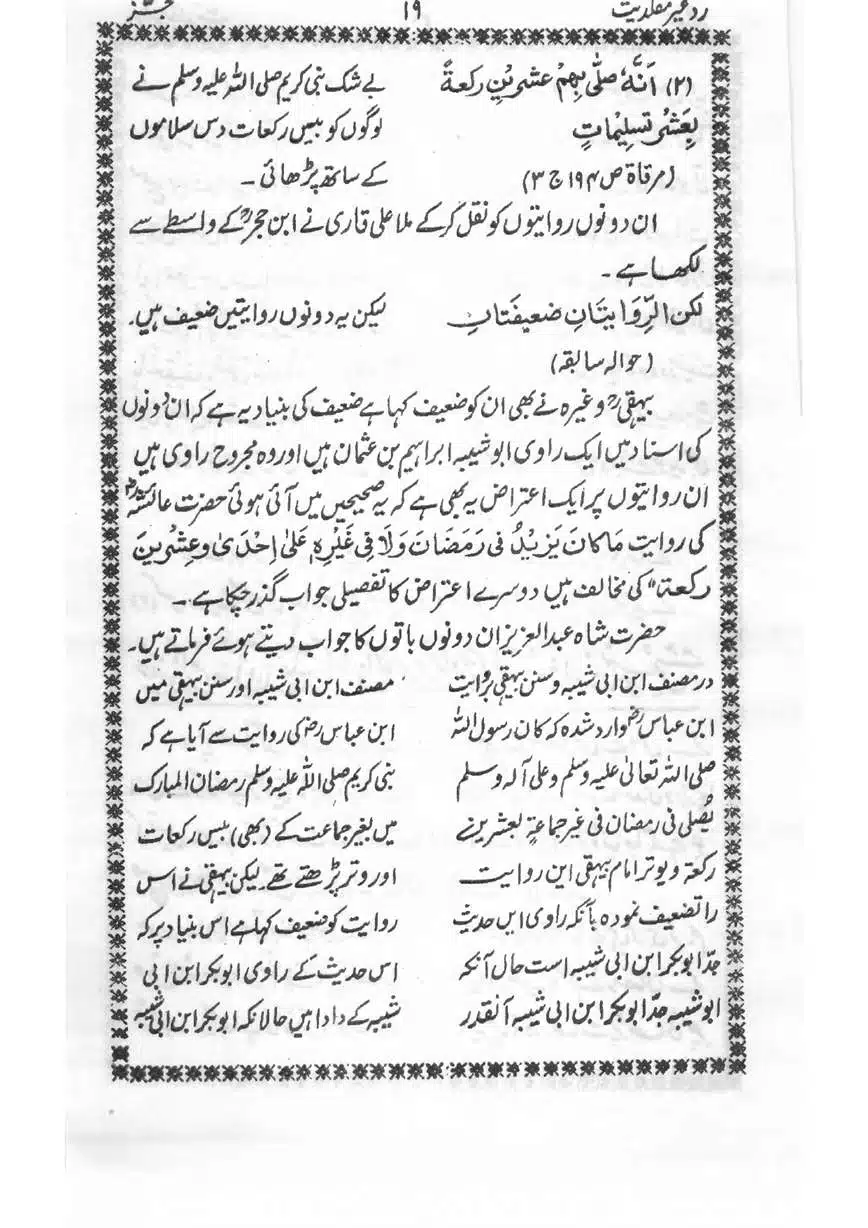 رد غیر مقلدیت ۱۹
(۲) اَنَّهٗ صلّٰی بِہِمْ عشرین رکعۃً بے شک نبی کریم صلی اللہ علیہ وسلم نے
بِعَشْرِ تسلیماتٍ لوگوں کو بیس رکعات دس سلاموں
(مرقاۃ ص ۱۹۴ ج ۳) کے ساتھ پڑھائی ۔
ان دونوں روایتوں کو نقل کر کے ملا علی قاری نے ابن حجرؒ کے واسطے سے
لکھا ہے ۔
لکن الرِّوَایتَانِ ضعیفَتَانِ لیکن یہ دونوں روایتیں ضعیف ہیں۔
(حوالہ سابقہ)
بیہقیؒ وغیرہ نے بھی ان کو ضعیف کہا ہے ضعیف کی بنیاد یہ ہے کہ ان دونوں
کی اسناد میں ایک راوی ابو شیبہ ابراہیم بن عثمان ہیں اور وہ مجروح راوی ہیں
ان روایتوں پر ایک اعتراض یہ بھی ہے کہ یہ صحیحیں میں آئی ہوئی حضرت عائشہؓ
کی روایت مَا کَانَ یَزِیْدُ فی رَمَضَانَ وَلَا فِی غَیْرِہٖ عَلیٰ اِحْدَیٰ وعِشْرِینَ
رکعۃ" کی مخالف ہیں دوسرے اعتراض کا تفصیلی جواب گذر چکا ہے ۔
حضرت شاہ عبدالعزیز ان دونوں باتوں کا جواب دیتے ہوئے فرماتے ہیں۔
در مصنف ابن ابی شیبہ وسنن بیہقی بروایت مصنف ابن ابی شیبہ اور سنن بیہقی میں
ابن عباسؓ وارد شدہ کہ کان رسول اللہ ابن عباسؓ کی روایت سے آیا ہے کہ
صلی اللہ تعالیٰ علیہ وسلم وعلی آلہ وسلم نبی کریم صلی اللہ علیہ وسلم رمضان المبارک
یُصلی فی رمضان فی غیر جماعۃٍ بعشرین میں بغیر جماعت کے (بھی) بیس رکعات
رکعۃ ویوتر امام بیہقی این روایت اور وتر پڑھتے تھے۔ لیکن بیہقی نے اس
را تضعیف نمودہ بآنکہ راوی ایں حدیث روایت کو ضعیف کہا ہے اس بنیاد پر کہ
جدّ ابوبکر ابن ابی شیبہ است حال آنکہ اس حدیث کے راوی ابوبکر ابن ابی
ابو شیبہ جدّ ابوبکر ابن ابی شیبہ آنقدر شیبہ کے دادا ہیں حالانکہ ابوبکر ابن ابی شیبہ